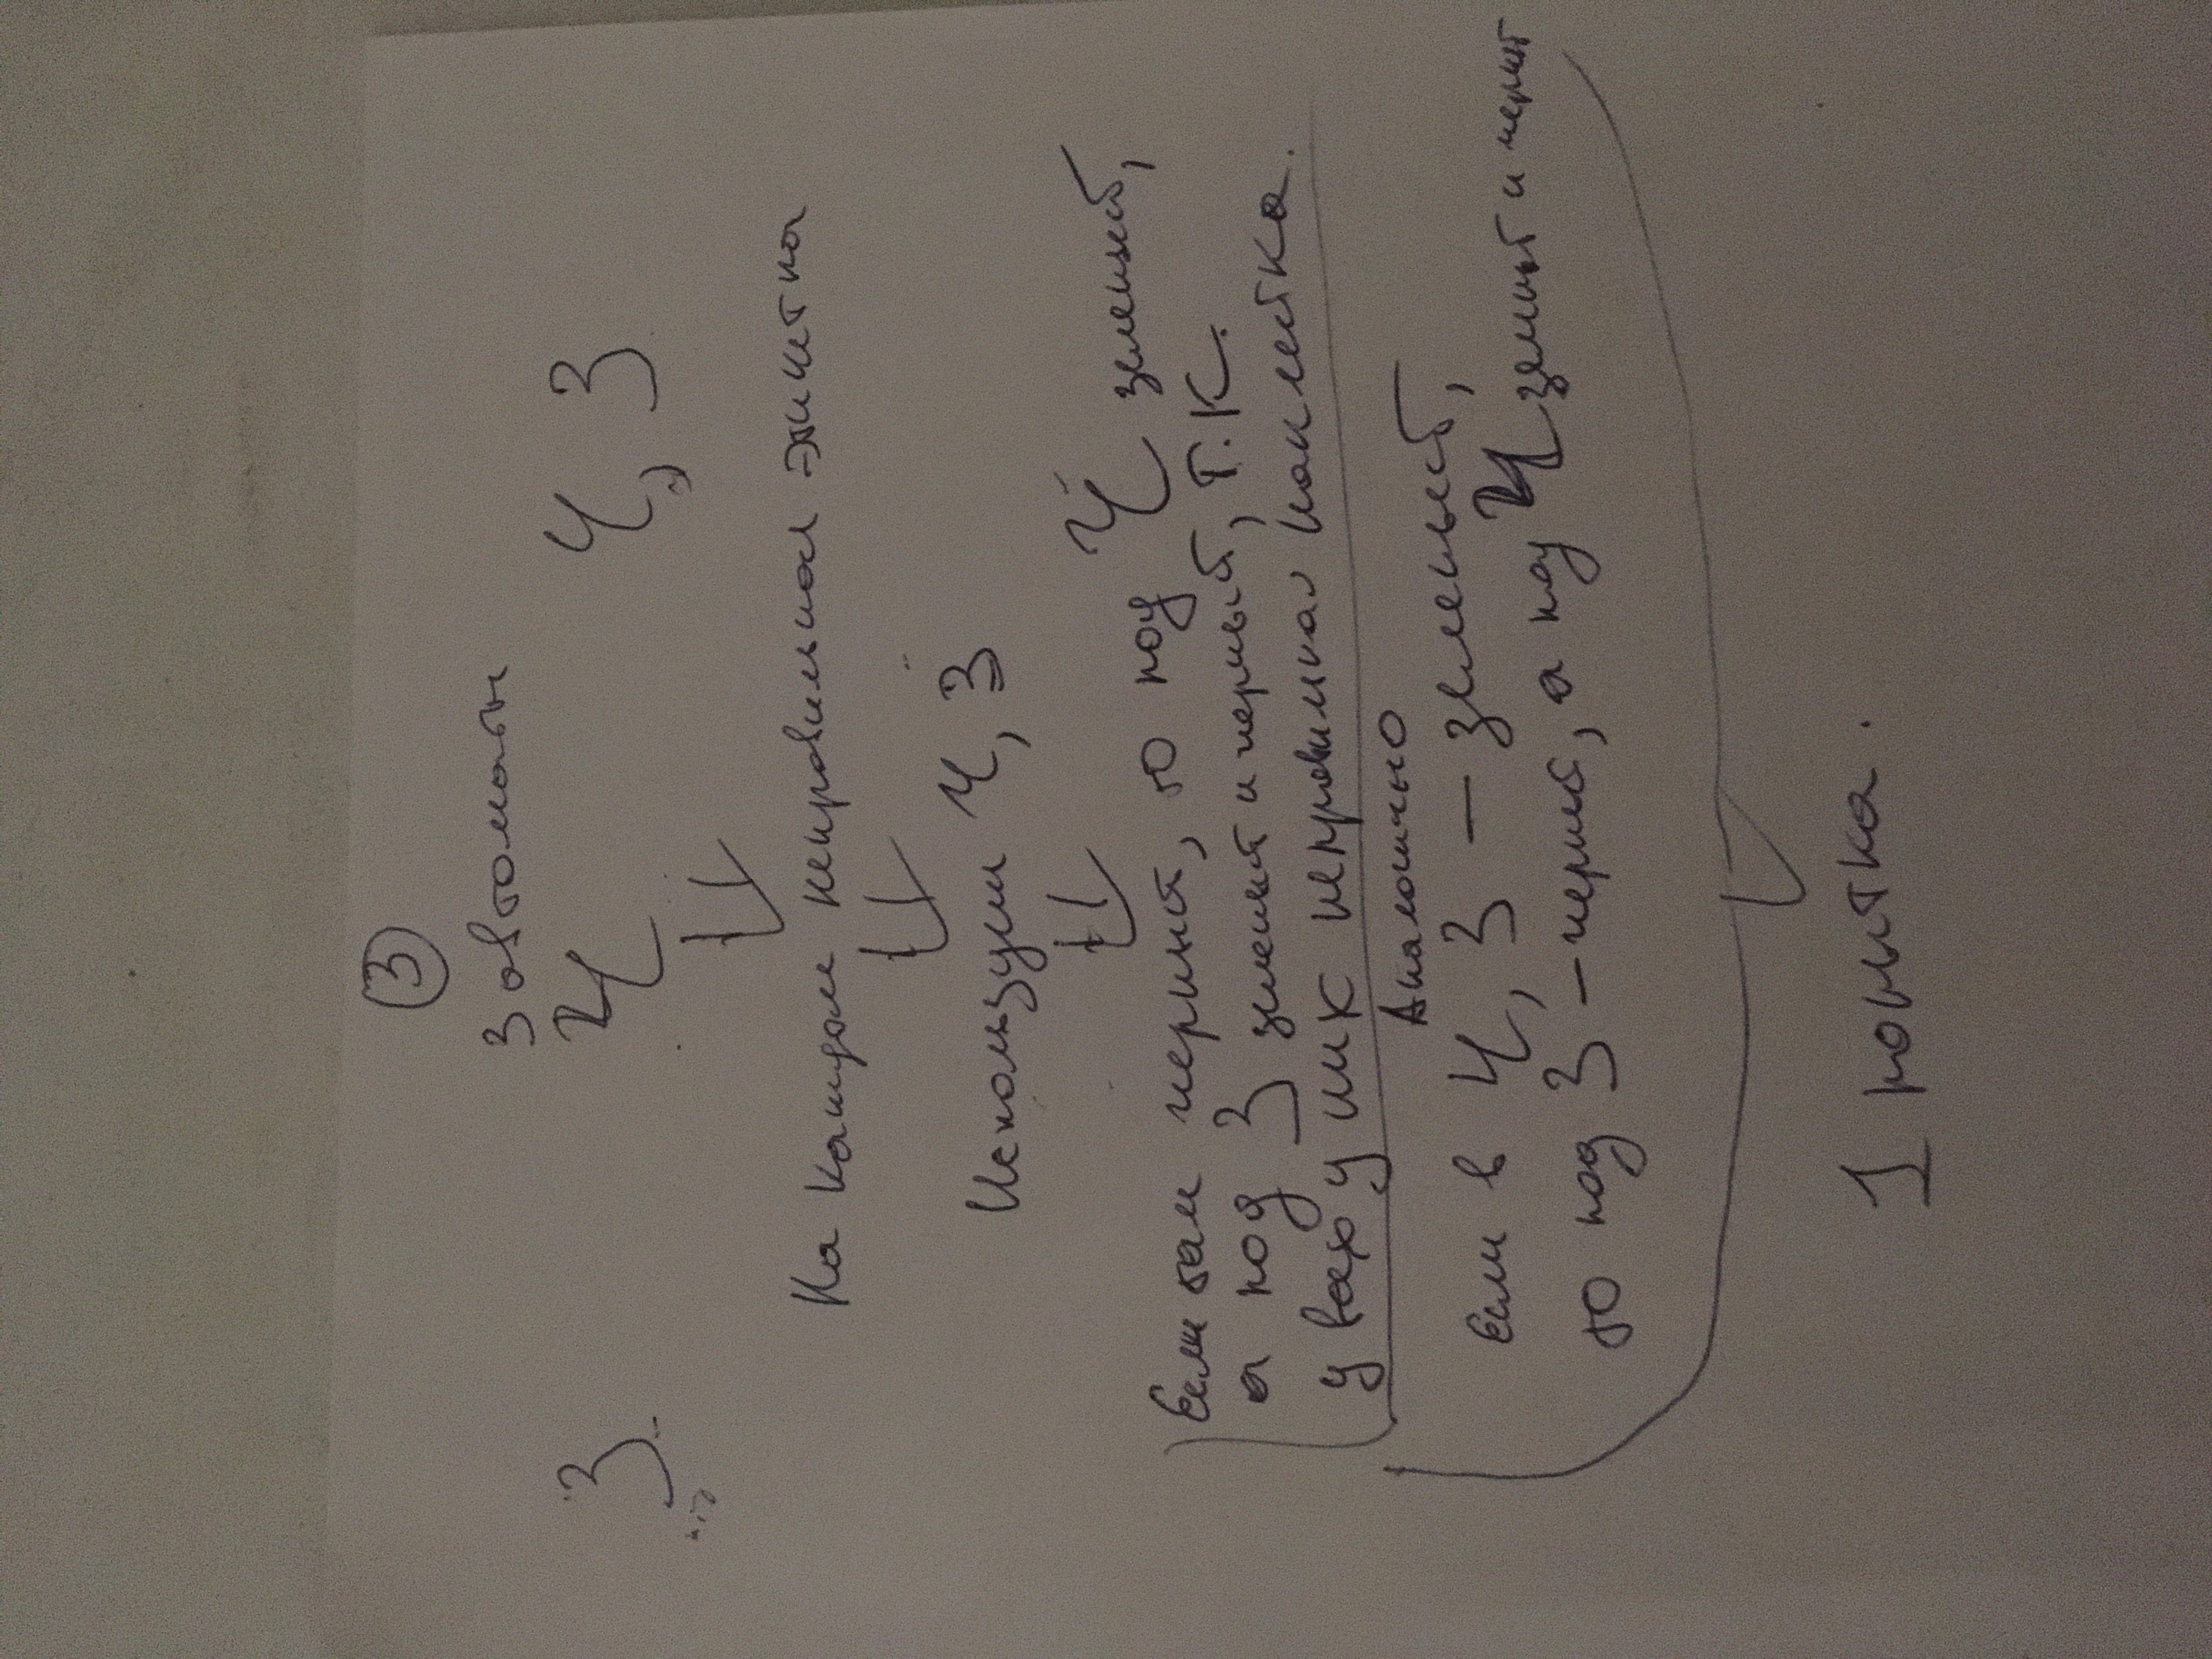 3
3 автоматы
З Ч Ч, З
На каждом неправильная этикетка
Используем Ч, З
Если там черный, то под Ч зеленый,
а под З зеленый и черный, т.к.
у всех у них неправильная наклейка.
Аналогично
Если в Ч, З — зеленый,
то под З — черный, а под Ч зеленый и черный
1 попытка.